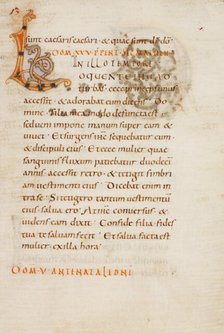 sunt caesaris caesari & quae sunt di do
IN ILLO TEMPORE
LOQUENTE IHU AD
princeps unus
accessit & adorabat eum dicens
filia mea modo defuncta est
inpone manum super eam &
uiuet Et surgens ihs sequebatur eum
& discipuli eius Et ecce mulier quae
sanguinis fluxum patiebatur duodecim
annis accessit retro & tetigit fimbriam
uestimenti eius Dicebat enim in
tra se Si tetigero tantum uestimentum
eius salua ero At ihs conuersus &
uidens eam dixit Confide filia fides
tua te saluam fecit Et salua facta est
mulier ex illa hora
DOM V ANTE NATALE DNI